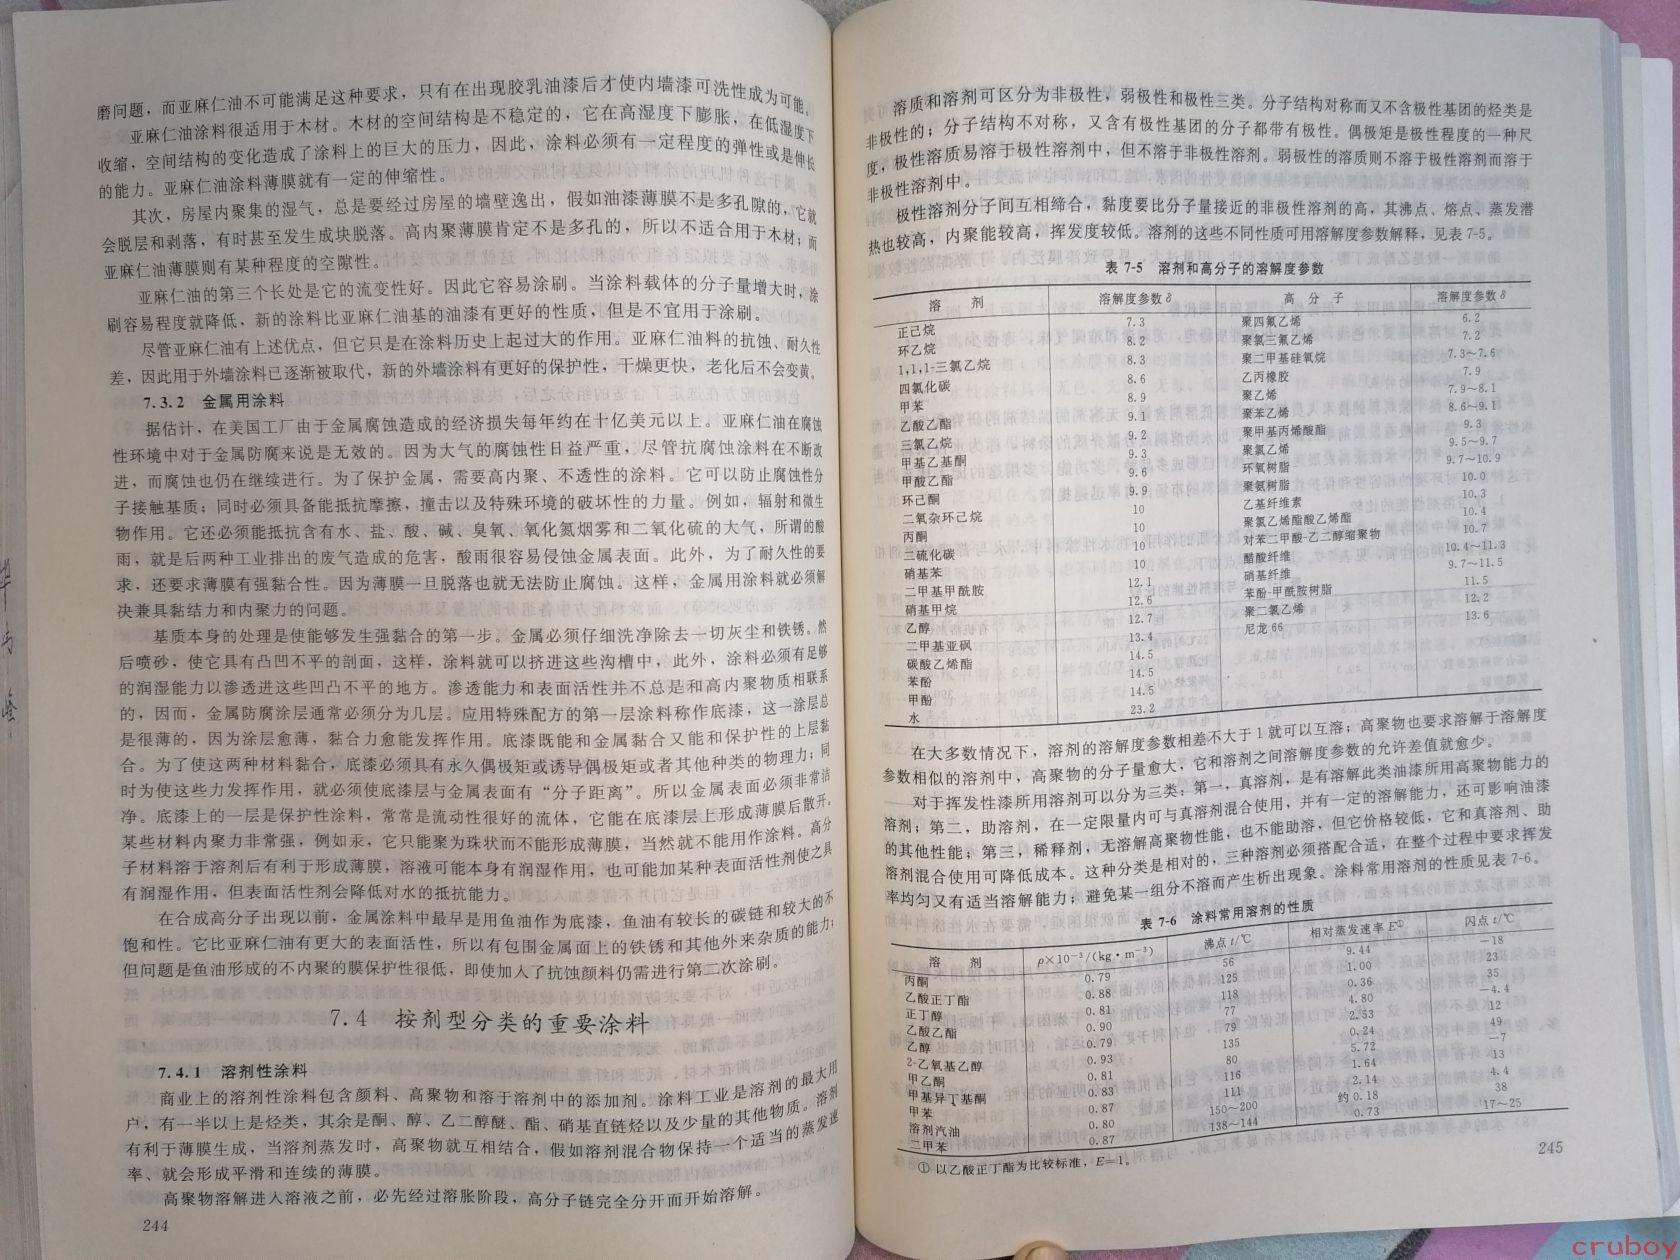 磨问题，而亚麻仁油不可能满足这种要求，只有在出现胶乳油漆后才使内墙漆可洗性成为可能。
亚麻仁油涂料很适用于木材。木材的空间结构是不稳定的，它在高湿度下膨胀，在低湿度下
收缩，空间结构的变化造成了涂料上的巨大的压力，因此，涂料必须有一定程度的弹性或是伸长
的能力。亚麻仁油涂料薄膜就有一定的伸缩性。
其次，房屋内聚集的湿气，总是要经过房屋的墙壁逸出，假如油漆薄膜不是多孔隙的，它就
会脱层和剥落，有时甚至发生成块脱落。高内聚薄膜肯定不是多孔的，所以不适合用于木材；而
亚麻仁油薄膜则有某种程度的空隙性。
亚麻仁油的第三个长处是它的流变性好。因此它容易涂刷。当涂料载体的分子量增大时，涂
刷容易程度就降低，新的涂料比亚麻仁油基的油漆有更好的性质，但是不宜用于涂刷。
尽管亚麻仁油有上述优点，但它只是在涂料历史上起过大的作用。亚麻仁油料的抗蚀、耐久性
差，因此用于外墙涂料已逐渐被取代，新的外墙涂料有更好的保护性，干燥更快，老化后不会变黄。
7.3.2 金属用涂料
据估计，在美国工厂由于金属腐蚀造成的经济损失每年约在十亿美元以上。亚麻仁油在腐蚀
性环境中对于金属防腐来说是无效的。因为大气的腐蚀性日益严重，尽管抗腐蚀涂料在不断改
进，而腐蚀也仍在继续进行。为了保护金属，需要高内聚、不透性的涂料。它可以防止腐蚀性分
子接触基质；同时必须具备能抵抗摩擦，撞击以及特殊环境的破坏性的力量。例如，辐射和微生
物作用。它还必须能抵抗含有水、盐、酸、碱、臭氧、氧化氮烟雾和二氧化硫的大气，所谓的酸
雨，就是后两种工业排出的废气造成的危害，酸雨很容易侵蚀金属表面。此外，为了耐久性的要
求，还要求薄膜有强黏合性。因为薄膜一旦脱落也就无法防止腐蚀。这样，金属用涂料就必须解
决兼具黏结力和内聚力的问题。
基质本身的处理是使能够发生强黏合的第一步。金属必须仔细洗净除去一切灰尘和铁锈。然
后喷砂，使它具有凸凹不平的剖面，这样，涂料就可以挤进这些沟槽中，此外，涂料必须有足够
的润湿能力以渗透进这些凹凸不平的地方。渗透能力和表面活性并不总是和高内聚物质相联系
的，因而，金属防腐涂层通常必须分为几层。应用特殊配方的第一层涂料称作底漆，这一涂层总
是很薄的，因为涂层愈薄，黏合力愈能发挥作用。底漆既能和金属黏合又能和保护性的上层黏
合。为了使这两种材料黏合，底漆必须具有永久偶极矩或诱导偶极矩或者其他种类的物理力；同
时为使这些力发挥作用，就必须使底漆层与金属表面有“分子距离”。所以金属表面必须非常洁
净。底漆上的一层是保护性涂料，常常是流动性很好的流体，它能在底漆层上形成薄膜后散开。
某些材料内聚力非常强，例如汞，它只能聚为珠状而不能形成薄膜，当然就不能用作涂料。高分
子材料溶于溶剂后有利于形成薄膜，溶液可能本身有润湿作用，也可能加某种表面活性剂使之具
有润湿作用，但表面活性剂会降低对水的抵抗能力。
在合成高分子出现以前，金属涂料中最早是用鱼油作为底漆，鱼油有较长的碳链和较大的不
饱和性。它比亚麻仁油有更大的表面活性，所以有包围金属面上的铁锈和其他外来杂质的能力；
但问题是鱼油形成的不内聚的膜保护性很低，即使加入了抗蚀颜料仍需进行第二次涂刷。
7.4 按剂型分类的重要涂料
7.4.1 溶剂性涂料
商业上的溶剂性涂料包含颜料、高聚物和溶于溶剂中的添加剂。涂料工业是溶剂的最大用
户，有一半以上是烃类，其余是酮、醇、乙二醇醚、酯、硝基直链烃以及少量的其他物质。溶剂
有利于薄膜生成，当溶剂蒸发时，高聚物就互相结合，假如溶剂混合物保持一个适当的蒸发速
率、就会形成平滑和连续的薄膜。
高聚物溶解进入溶液之前，必先经过溶胀阶段，高分子链完全分开而开始溶解。
244
溶质和溶剂可区分为非极性，弱极性和极性三类。分子结构对称而又不含极性基团的烃类是
非极性的；分子结构不对称，又含有极性基团的分子都带有极性。偶极矩是极性程度的一种尺
度，极性溶质易溶于极性溶剂中，但不溶于非极性溶剂。弱极性的溶质则不溶于极性溶剂而溶于
非极性溶剂中。
极性溶剂分子间互相缔合，黏度要比分子量接近的非极性溶剂的高，其沸点、熔点、蒸发潜
热也较高，内聚能较高，挥发度较低。溶剂的这些不同性质可用溶解度参数解释，见表 7-5。
表 7-5 溶剂和高分子的溶解度参数
溶 剂 溶解度参数 δ 高 分 子 溶解度参数 δ
正己烷 7.3 聚四氟乙烯 6.2
环乙烷 8.2 聚氯三氟乙烯 7.2
1,1,1-三氯乙烷 8.3 聚二甲基硅氧烷 7.3～7.6
四氯化碳 8.6 乙丙橡胶 7.9
甲苯 8.9 聚乙烯 7.9～8.1
乙酸乙酯 9.1 聚苯乙烯 8.6～9.1
三氯乙烷 9.2 聚甲基丙烯酸酯 9.3
甲基乙基酮 9.3 聚氯乙烯 9.5～9.7
甲酸乙酯 9.6 环氧树脂 9.7～10.9
环己酮 9.9 聚氨树脂 10.0
二氧杂环己烷 10 乙基纤维素 10.3
丙酮 10 聚氯乙烯酯酸乙烯酯 10.4
二硫化碳 10 对苯二甲酸-乙二醇缩聚物 10.7
硝基苯 10 醋酸纤维 10.4～11.3
二甲基甲酰胺 12.1 硝基纤维 9.7～11.5
硝基甲烷 12.6 苯酚-甲酰胺树脂 11.5
乙醇 12.7 聚二氯乙烯 12.2
二甲基亚砜 13.4 尼龙 66 13.6
碳酸乙烯酯 14.5
苯酚 14.5
甲酚 14.5
水 23.2
在大多数情况下，溶剂的溶解度参数相差不大于 1 就可以互溶；高聚物也要求溶解于溶解度
参数相似的溶剂中，高聚物的分子量愈大，它和溶剂之间溶解度参数的允许差值就愈少。
对于挥发性漆所用溶剂可以分为三类：第一，真溶剂，是有溶解此类油漆所用高聚物能力的
溶剂；第二，助溶剂，在一定限量内可与真溶剂混合使用，并有一定的溶解能力，还可影响油漆
的其他性能；第三，稀释剂，无溶解高聚物性能，也不能助溶，但它价格较低，它和真溶剂、助
溶剂混合使用可降低成本。这种分类是相对的，三种溶剂必须搭配合适，在整个过程中要求挥发
率均匀又有适当溶解能力；避免某一组分不溶而产生析出现象。涂料常用溶剂的性质见表 7-6。
表 7-6 涂料常用溶剂的性质
溶 剂 ρ×10⁻³/(kg·m⁻³) 沸点 t/℃ 相对蒸发速率 E① 闪点 t/℃
丙酮 0.79 56 9.44 −18
乙酸正丁酯 0.88 125 1.00 23
正丁醇 0.81 118 0.36 35
乙酸乙酯 0.90 77 4.80 −4.4
乙醇 0.79 79 2.53 12
2-乙氧基乙醇 0.93 135 0.24 49
甲乙酮 0.81 80 5.72 −7
甲基异丁基酮 0.83 116 1.64 13
甲苯 0.87 111 2.14 4.4
溶剂汽油 0.80 150～200 约 0.18 38
二甲苯 0.87 138～144 0.73 17～25
① 以乙酸正丁酯为比较标准，E=1。
245
cruboy